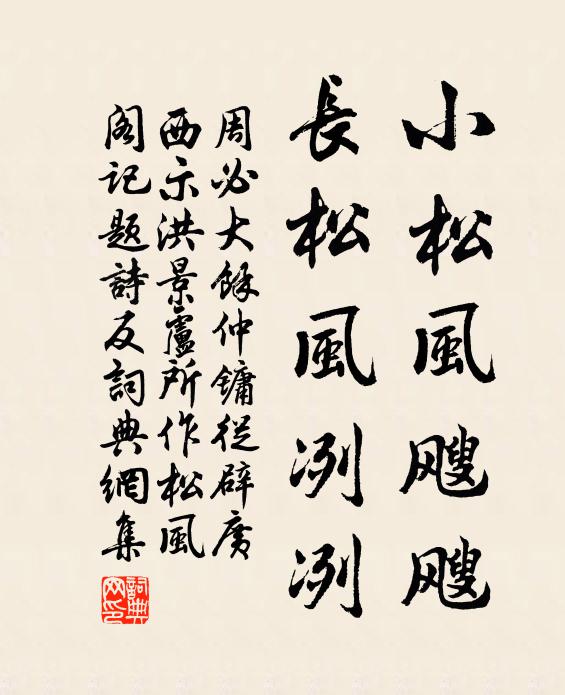 小松風颼颼
長松風冽冽
周必大餘仲鏞從辟廣
西示洪景盧所作松風
閣記題詩反詞典網集
詞典網印